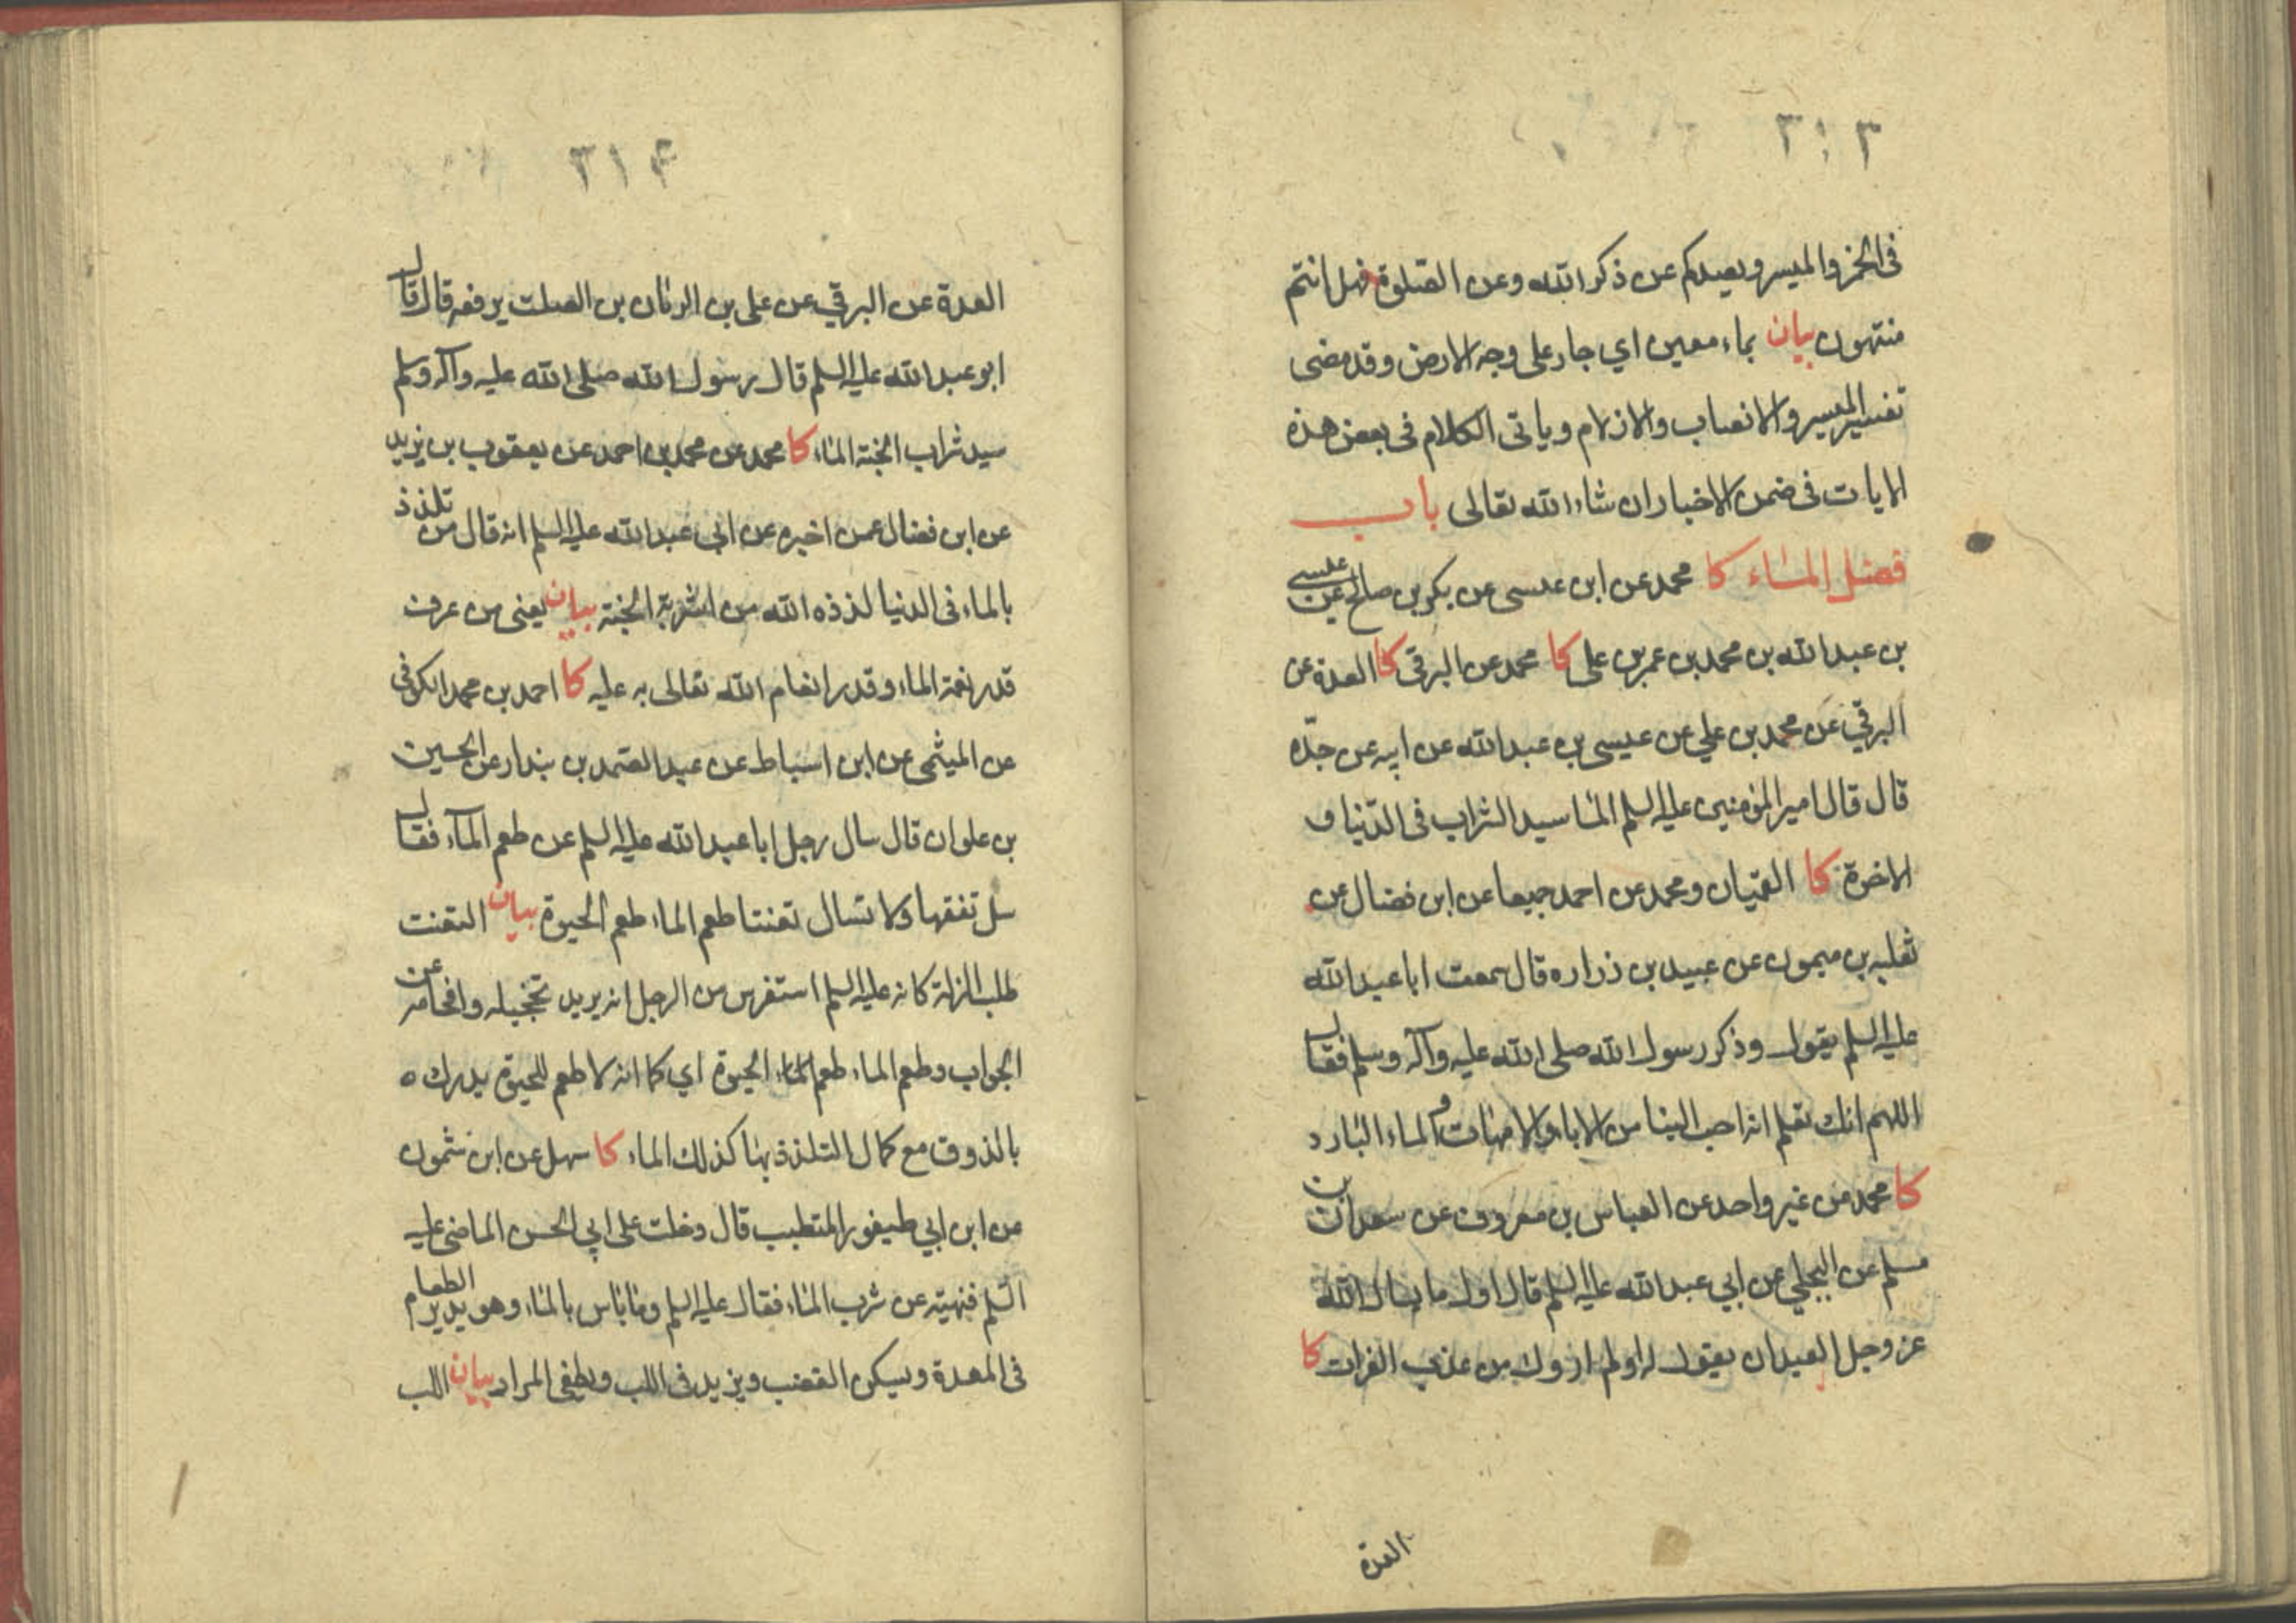 ٣١٣
في الخمر والميسر ويصدكم عن ذكر الله وعن الصلوة فهل انتم
منتهون بيان بماء معين اي جار على وجه الارض وقد مضى
تفسير الميسر والانصاب والازلام وياتى الكلام فى بعض هذه
الايات فى ضمن الاخبار ان شاء الله تعالى باب
فضل الماء كا محمد عن ابن عيسى عن بكر بن صالح عن عيسى
بن عبد الله بن محمد بن عمر بن على كا محمد عن البرقي كا العدة عن
البرقي عن محمد بن علي عن عيسى بن عبد الله عن ابيه عن جدّه
قال قال امير المؤمنين عليه السلم الماء سيد الشراب فى الدّنيا و
الاخرة كا القميان ومحمد عن احمد جميعا عن ابن فضال عن
ثعلبه بن ميمون عن عبيد بن زراره قال سمعت ابا عبد الله
عليه السلم يقول وذكر رسول الله صلى الله عليه وآله وسلم فقال
اللهم انك تعلم انه احب الينا من الاباء والامهات والماء البارد
كا محمد عن غير واحد عن العباس بن معروف عن سعدان بن
مسلم عن البجلي عن ابي عبد الله عليه السلم قال اول ما يسال الله
عز وجل العبد ان يقول له اولم اروك من عذب الفرات كا
العدة
٣١۴
العدة عن البرقي عن على بن الريان بن الصلت يرفعه قال قال
ابو عبد الله عليه السلم قال رسول الله صلى الله عليه وآله وسلم
سيد شراب الجنة الماء كا محمد عن محمد بن احمد عن يعقوب بن يزيد
عن ابن فضال عمن اخبره عن ابي عبد الله عليه السلم انه قال من تلذذ
بالماء فى الدنيا لذذه الله من اشربة الجنة بيان يعنى من عرف
قدر نعمة الماء وقدر انعام الله تعالى به عليه كا احمد بن محمد الكوفى
عن الميثمى عن ابن اسباط عن عبد الصمد بن بندار عن الحسين
بن علوان قال سال رجل ابا عبد الله عليه السلم عن طعم المآء فقال
سل تفقها ولا تسال تعنتا طعم الماء طعم الحيوة بيان التعنت
طلب الزلة كانه عليه السلم استفرس من الرجل انه يريد تخجيله وافحامه عن
الجواب وطعم الماء طعم الماء الحيوة اي كما انه لا طعم للحيوة يدرك ه
بالذوق مع كمال التلذذ بها كذلك الماء كا سهل عن ابن شمون
عن ابن ابي طيفور المتطبب قال دخلت على ابي الحسن الماضى عليه
السّلم فنهيته عن شرب الماء فقال عليه السلم وما باس بالماء وهو يدير الطعام
فى المعدة ويسكن الغضب ويزيد فى اللب ويطفى المرار بيان اللب